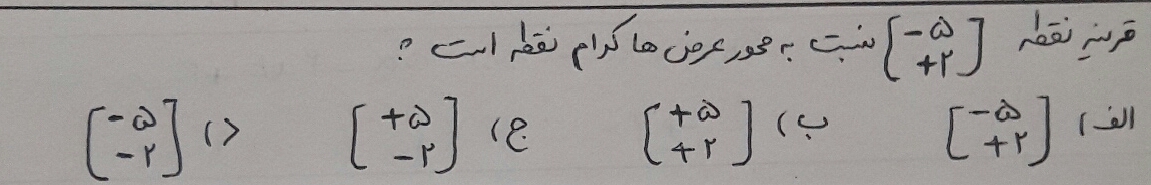 قرینهِ نقطه [-۵ +۲] نسبت به محور عرض ها کدام نقطه است ؟
الف) [-۵ +۲] ب) [+۵ +۲] ج) [+۵ -۲] د) [-۵ -۲]